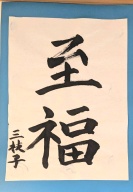 至福
三枝子